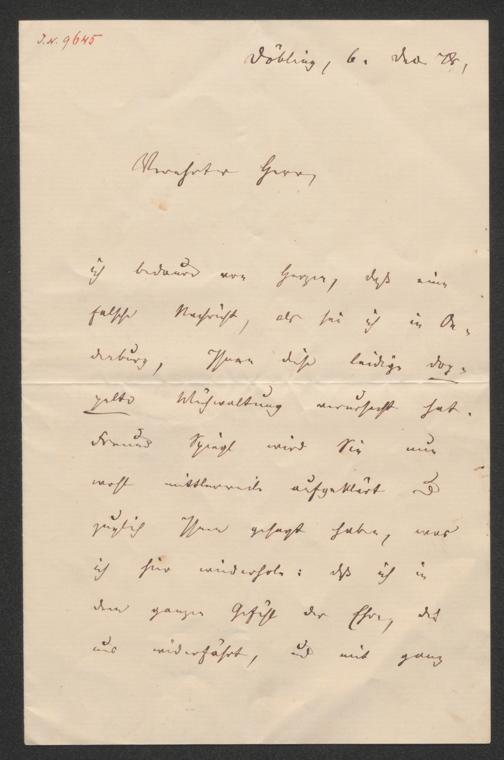 J.N. 9645
Döbling, 6. Dec 78,
Verehrter Herr,
ich bedaure von Herzen, daß eine
falsche Nachricht, als sei ich in
derburg, Ihnen diese leidige dop-
pelte Mühwaltung verursacht hat.
Freund Spiegl wird Sie nun
wohl mittlerweile aufgeklärt u
zugleich Ihnen gesagt haben, was
ich hier wiederhole: daß ich in
dem ganzen Gefühl der Ehre, die
uns widerfährt, und mit ganz